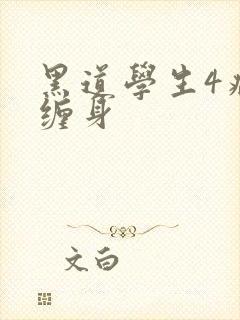 黑道學生4
缠身
文白